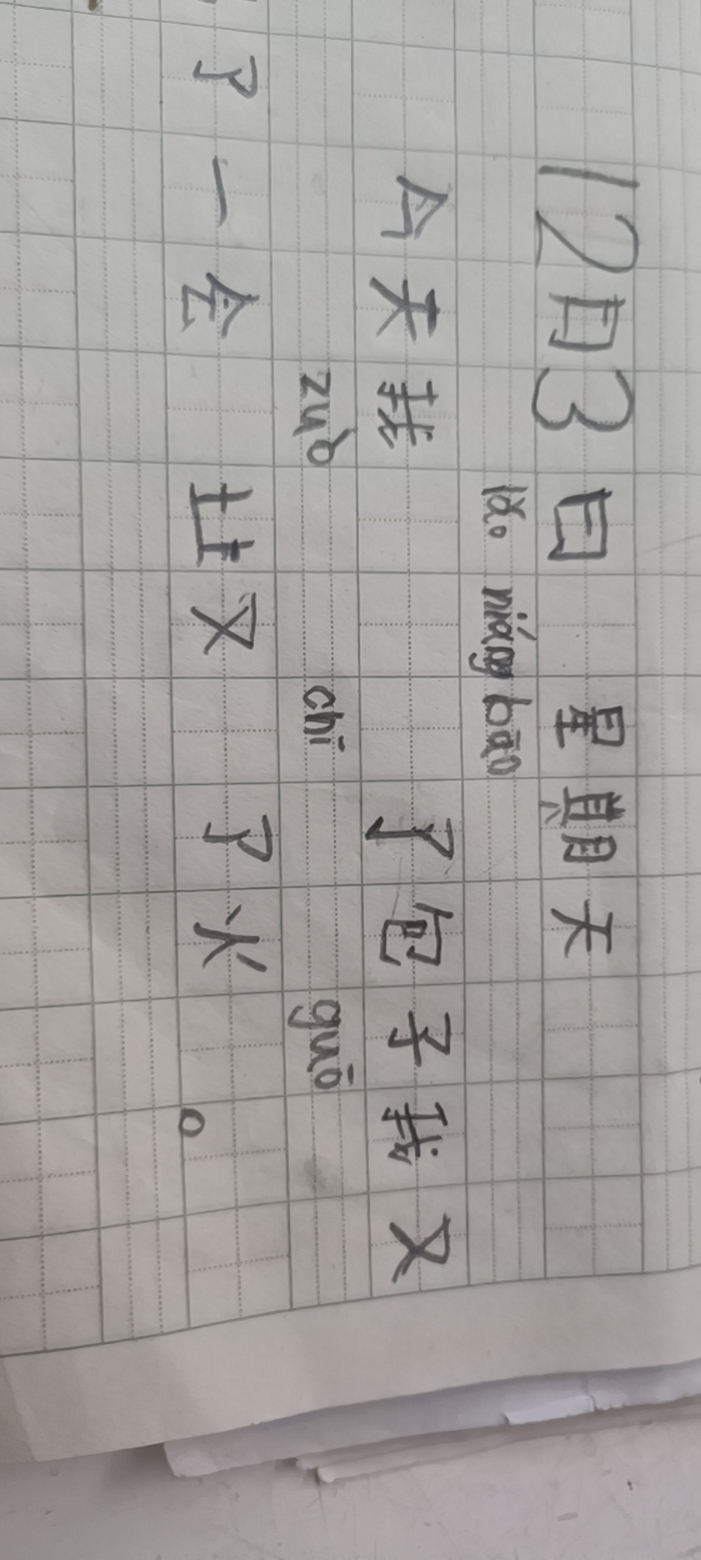 12月3日 星期天
lǎo niáng bāo
今天我 了包子我又
zuò chī guō
了一会 又 了火 。